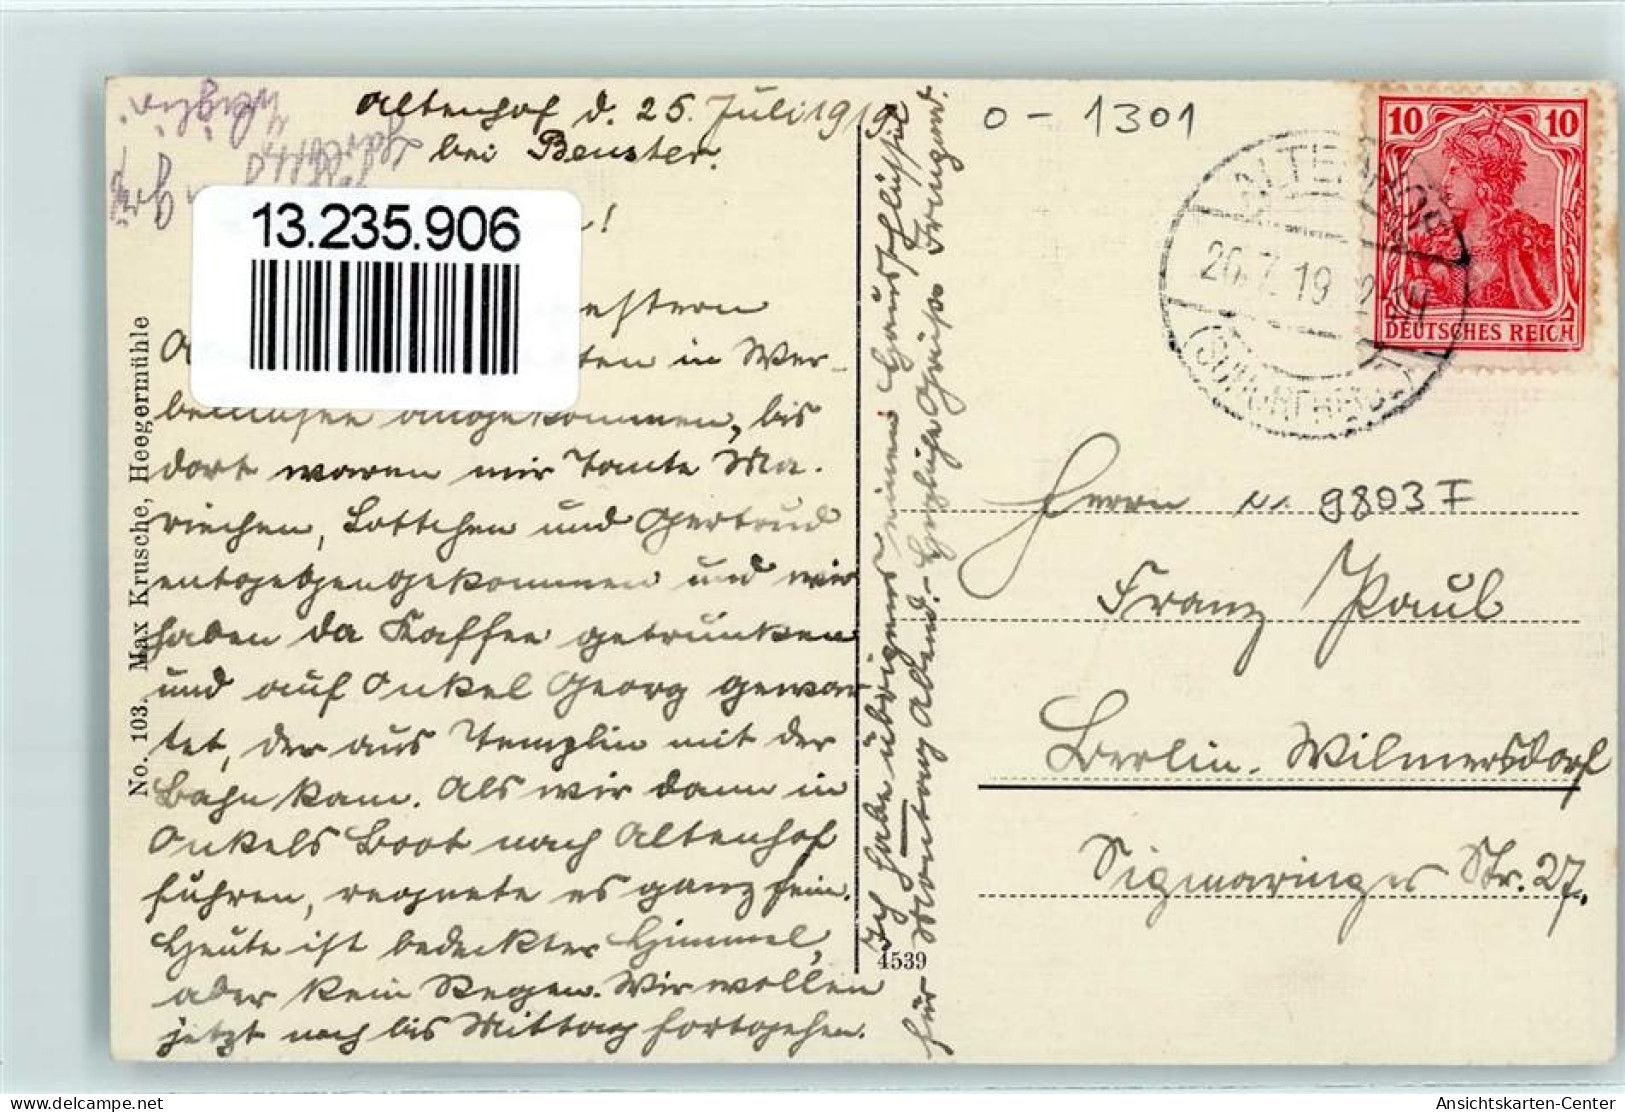 Altenhof d. 25. Juli 1919
bei Beuster.
13.235.906
!
estern
ten in Wer-
bellinsee angekommen, bis
dort waren mir Tante Ma-
riechen, Lottchen und Gertrud
entgegengekommen und wir
haben da Kaffee getrunken
und auf Onkel Georg gewar
tet, der aus Templin mit der
Bahn kam. Als wir dann in
Onkels Boot nach Altenhof
fuhren, regnete es ganz fein.
Heute ist bedeckter Himmel,
aber kein Regen. Wir wollen
jetzt noch bis Mittag fortgehen.
Ich habe übrigens einen Hausschlüssel
für Montag Abend. - Herzliche Grüße Irmgard.
No. 103. Max Krusche, Heegermühle
4539
0 - 1301
10 10
DEUTSCHES REICH
ALTENHOF
26.7.19
Herrn Nr. 9803 F
Franz Paul
Berlin. Wilmersdorf
Sigmaringer Str. 27.
Ansichtskarten-Center